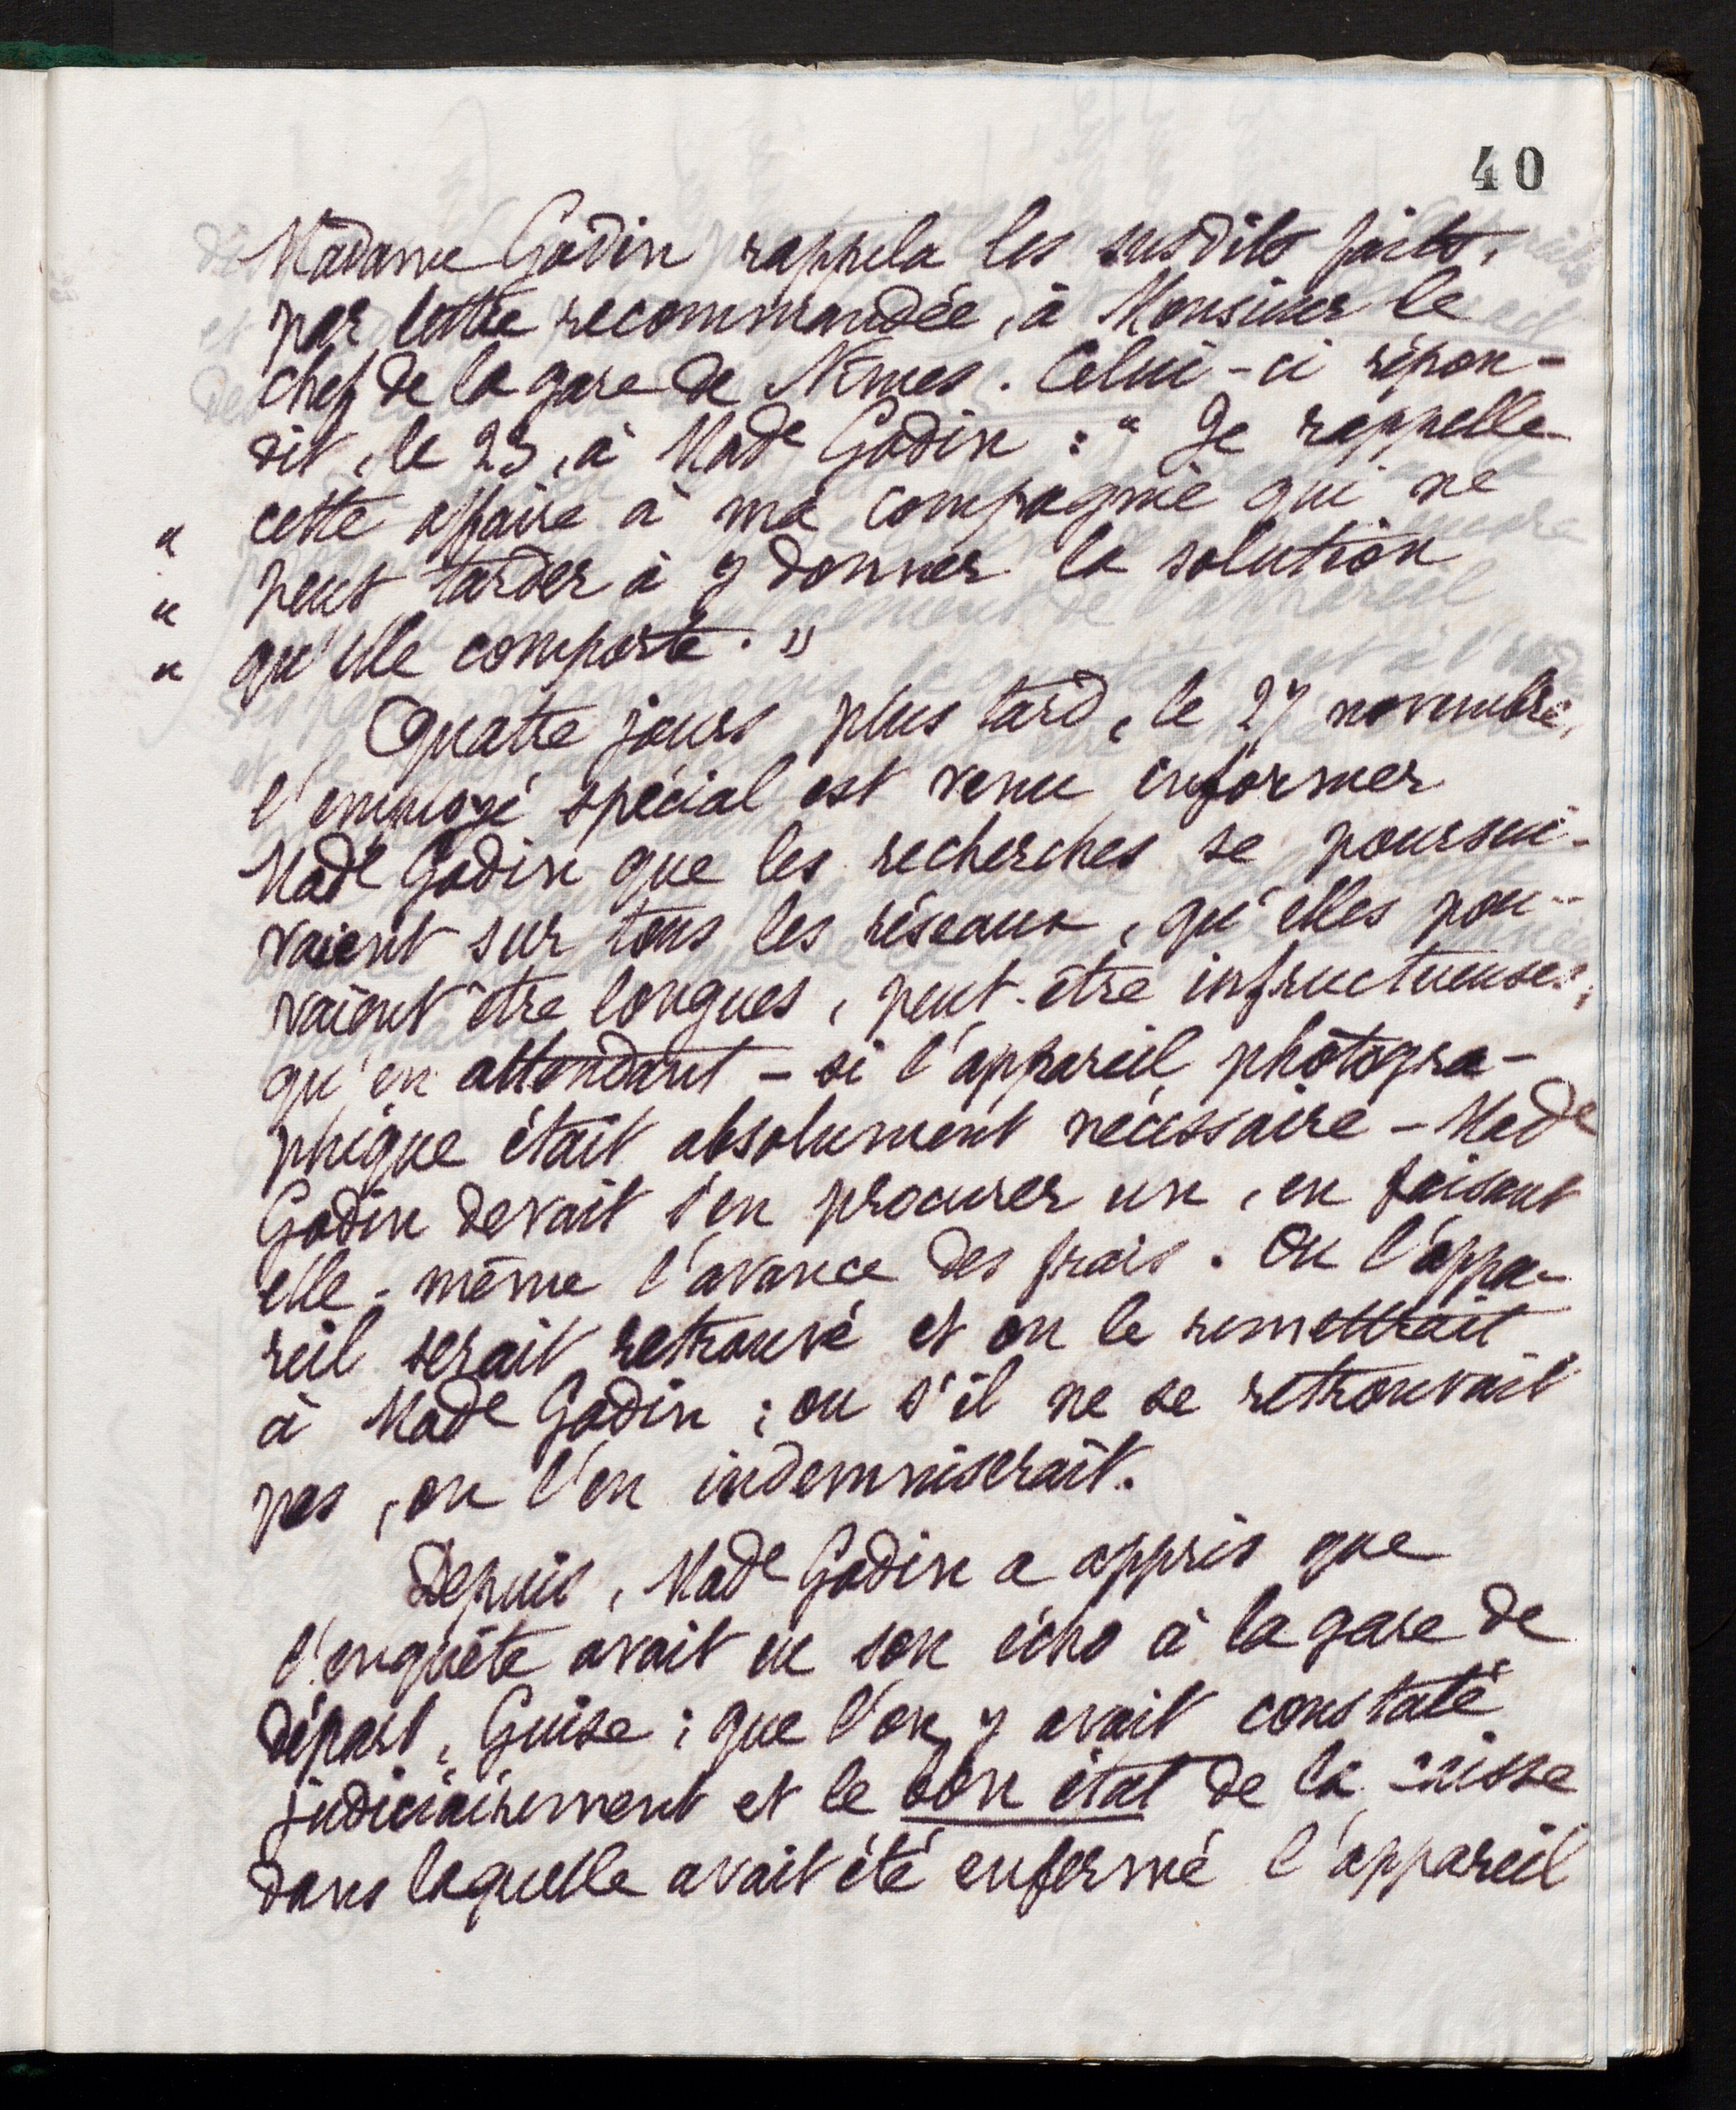 40
Madame Godin rappela les susdits faits,
par lettre recommandée, à Monsieur le
chef de la gare de Nîmes. Celui-ci répon-
dit, le 23, à Made Godin : " Je rappelle
" cette affaire à ma compagnie qui ne
" peut tarder à y donner la solution
" qu'elle comporte. "
Quatre jours plus tard, le 27 novembre,
l'employé spécial est venu informer
Made Godin que les recherches se poursui-
vaient sur tous les réseaux, qu'elles pou-
vaient être longues, peut-être infructueuses;
qu'en attendant - si l'appareil photogra-
phique était absolument nécessaire - Made
Godin devait s'en procurer un, en faisant
elle-même l'avance des frais. Ou l'appa-
reil serait retrouvé et on le remettrait
à Made Godin ; ou s'il ne se retrouvait
pas, on l'en indemniserait.
Depuis, Made Godin a appris que
l'enquête avait eu son écho à la gare de
départ, Guise ; que l'on y avait constaté
judiciairement et le bon état de la caisse
dans laquelle avait été enfermé l'appareil